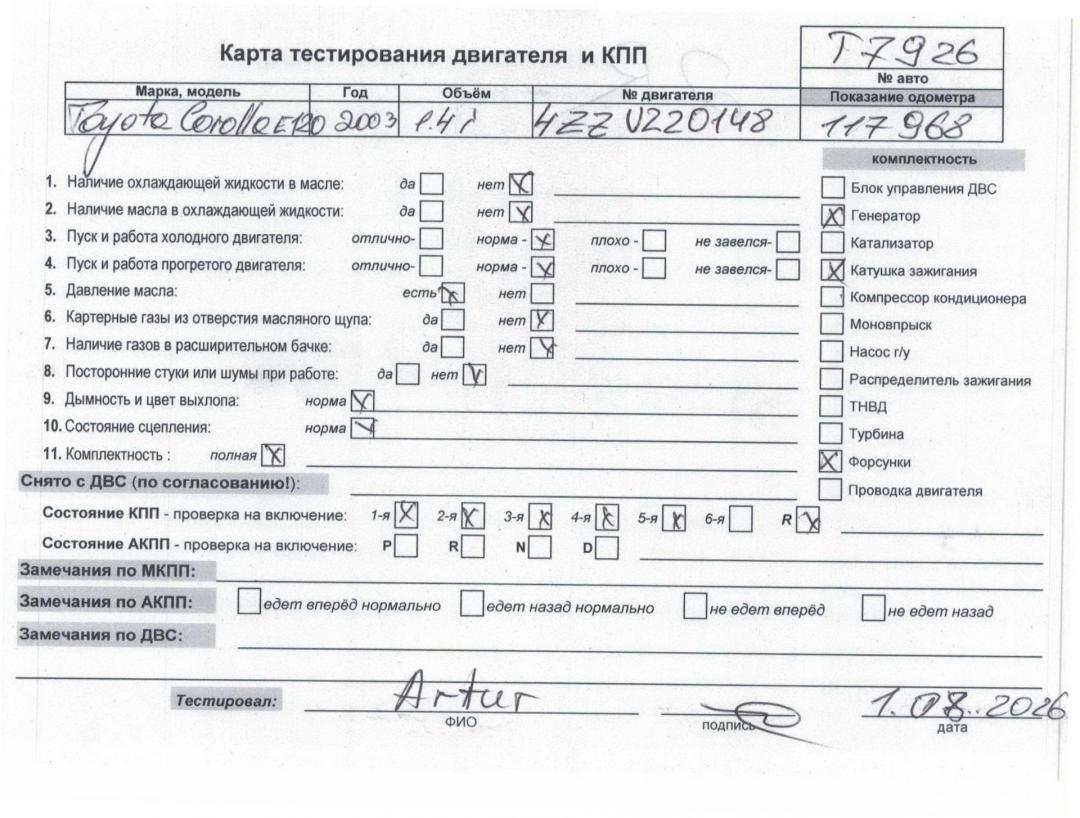 Карта тестирования двигателя и КПП
T7926
№ авто
Марка, модель Год Объём № двигателя Показание одометра
Toyota Corolla E120 2003 1.4i 4ZZ U220148 117 968
комплектность
1. Наличие охлаждающей жидкости в масле: да нет X
2. Наличие масла в охлаждающей жидкости: да нет X
3. Пуск и работа холодного двигателя: отлично- норма - X плохо - не завелся-
4. Пуск и работа прогретого двигателя: отлично- норма - X плохо - не завелся-
5. Давление масла: есть X нет
6. Картерные газы из отверстия масляного щупа: да нет X
7. Наличие газов в расширительном бачке: да нет X
8. Посторонние стуки или шумы при работе: да нет X
9. Дымность и цвет выхлопа: норма X
10. Состояние сцепления: норма X
11. Комплектность : полная X
Блок управления ДВС
X Генератор
Катализатор
X Катушка зажигания
Компрессор кондиционера
Моновпрыск
Насос г/у
Распределитель зажигания
ТНВД
Турбина
X Форсунки
Проводка двигателя
Снято с ДВС (по согласованию!):
Состояние КПП - проверка на включение: 1-я X 2-я X 3-я X 4-я X 5-я X 6-я R X
Состояние АКПП - проверка на включение: P R N D
Замечания по МКПП:
Замечания по АКПП: едет вперёд нормально едет назад нормально не едет вперёд не едет назад
Замечания по ДВС:
Тестировал: Artur
ФИО подпись дата